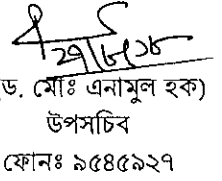 ড. মোঃ এনামুল হক)
উপসচিব
ফোনঃ ৯৫৪৫৯২৭